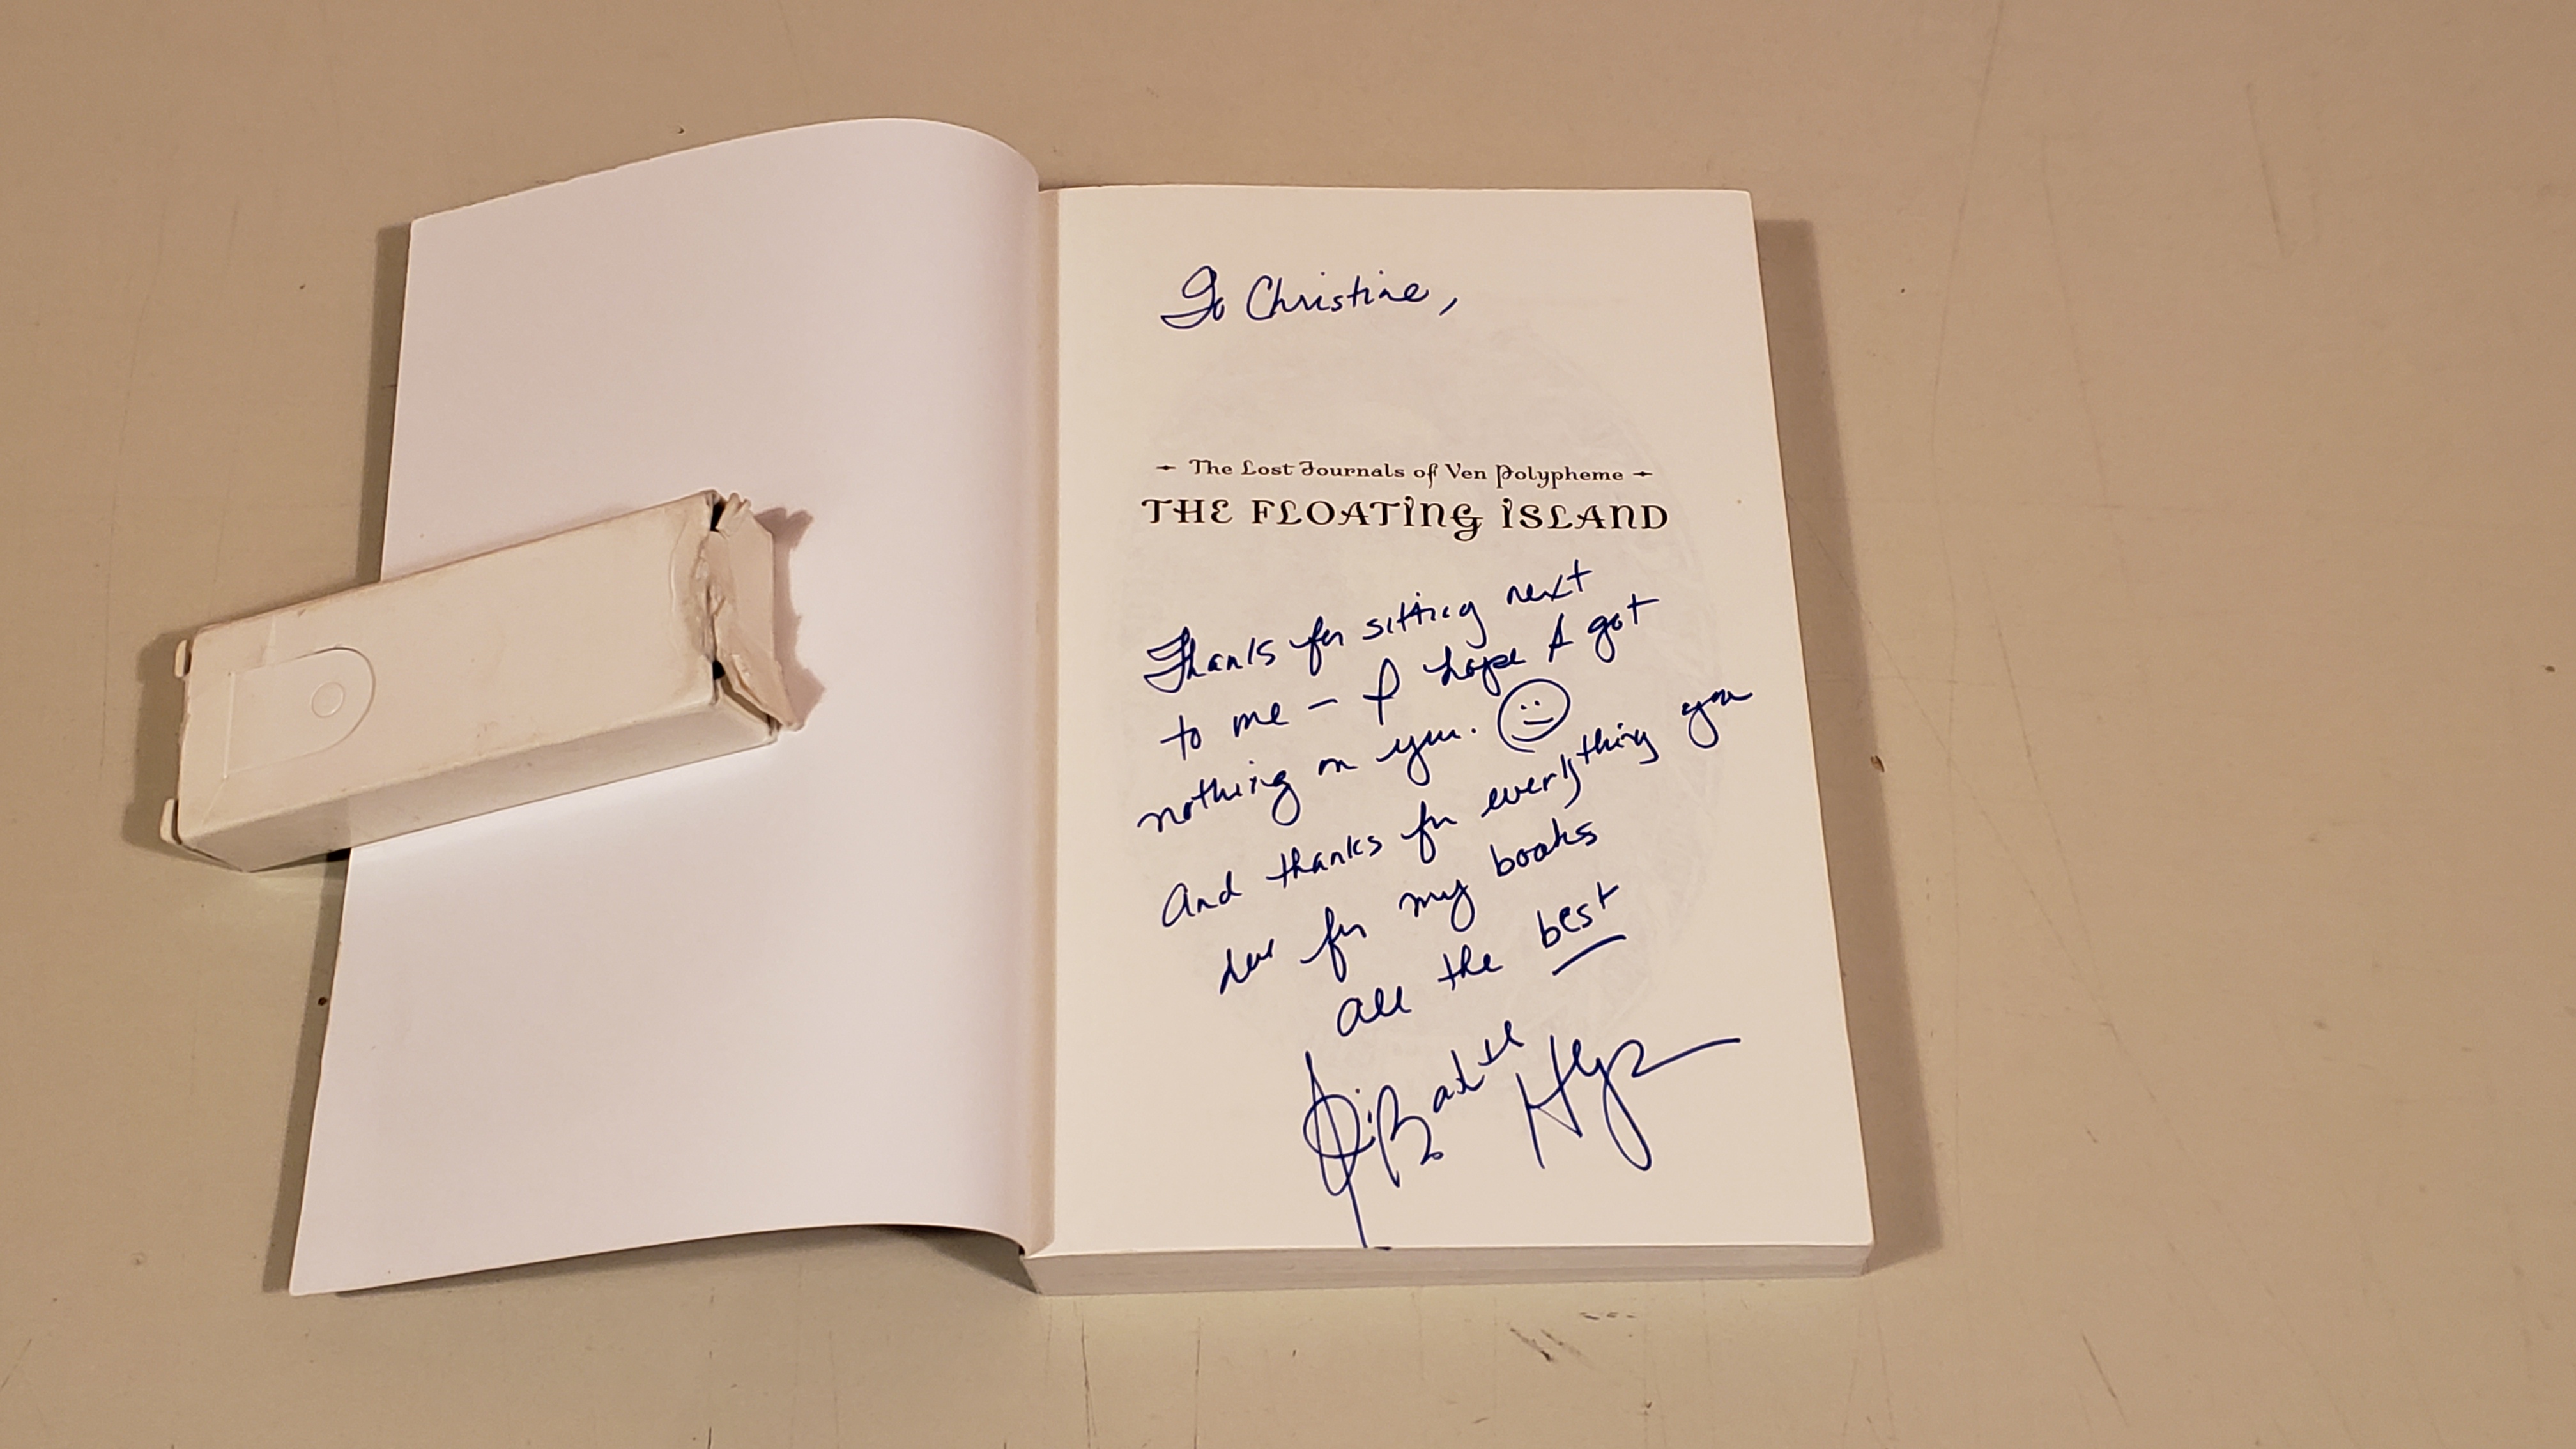 To Christine,
The Lost Journals of Ven Polypheme
THE FLOATING ISLAND
Thanks for sitting next
to me – I hope I got
nothing on you.
And thanks for everything you
do for my books
All the best